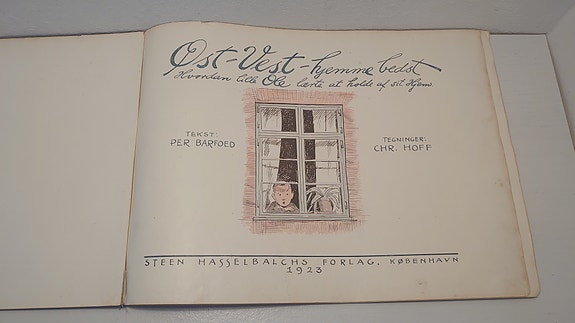 Øst-Vest-hjemme bedst
Hvordan lille Ole lærte at holde af sit Hjem
TEKST:
PER BARFOED
TEGNINGER:
CHR. HOFF
STEEN HASSELBALCHS FORLAG, KØBENHAVN
1923